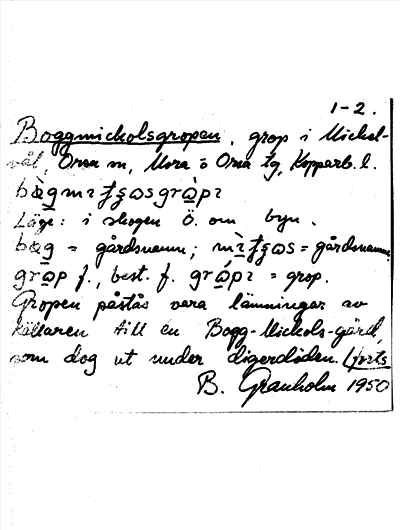 1-2.
Boggmickolsgropen, grop i Mickel-
vål, Orsa sn, Mora o Orsa tg, Kopparb. l.
Läge: i skogen Ö. om byn.
bæg = gårdsnamn; = gårdsnamn
f., best. f. = grop.
Gropen påstås vara lämningar av
källaren till en Bogg-Mickols-gård,
som dog ut under digerdöden. (forts.
B. Granholm 1950